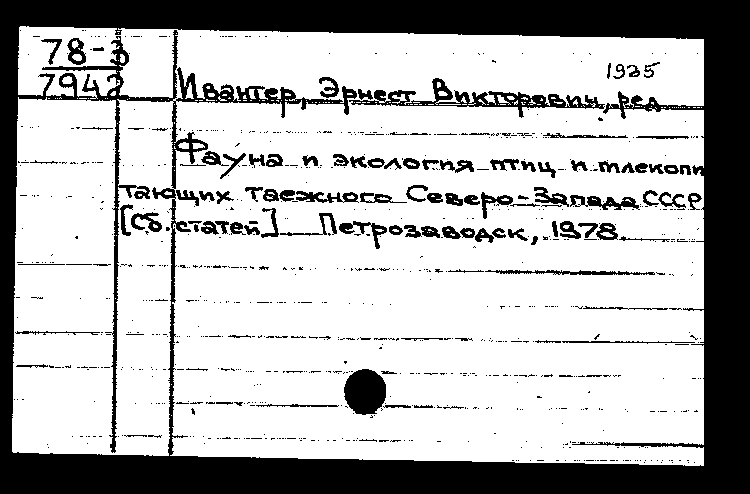 78-3
7942
1935
Ивантер, Эрнест Викторович, ред
Фауна и экология птиц и млекопи
тающих таежного Северо-Запада СССР
[Сб. статей]. Петрозаводск, 1978.